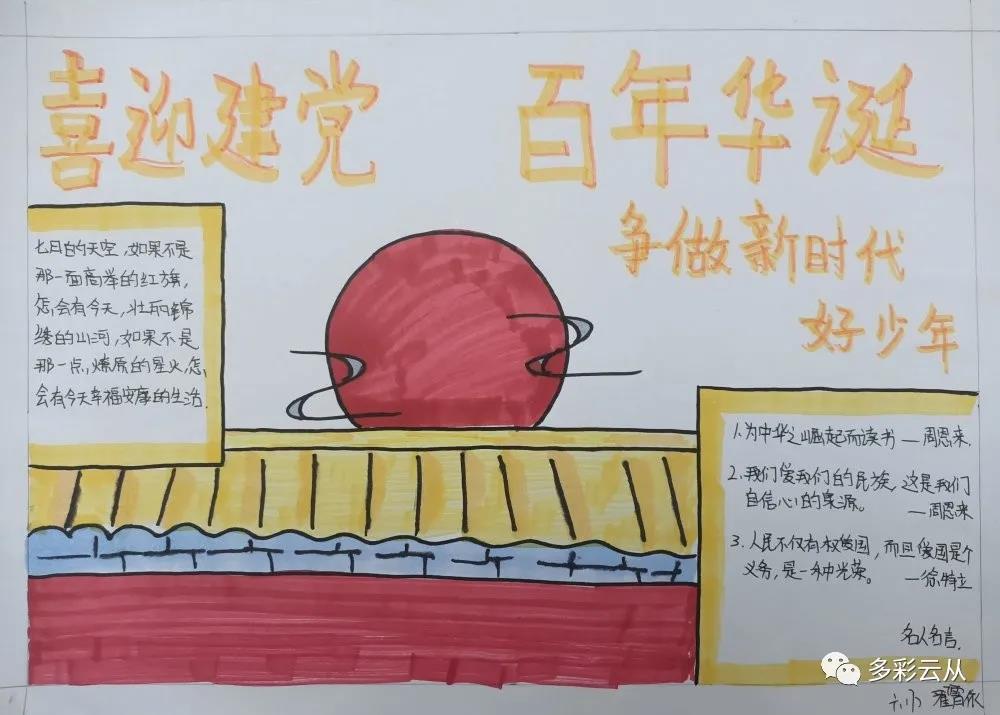 喜迎建党 百年华诞
争做新时代
好少年
七月的天空,如果不是
那一面高举的红旗,
怎会有今天,壮丽锦
绣的山河,如果不是
那一点,燎原的星火怎,
会有今天幸福安康的生活.
1.为中华之崛起而读书—周恩来.
2.我们爱我们的民族,这是我们
自信心的泉源。
—周恩来
3.人民不仅有权爱国,而且爱国是个
义务,是一种光荣。 —徐特立
名人名言.
多彩云从